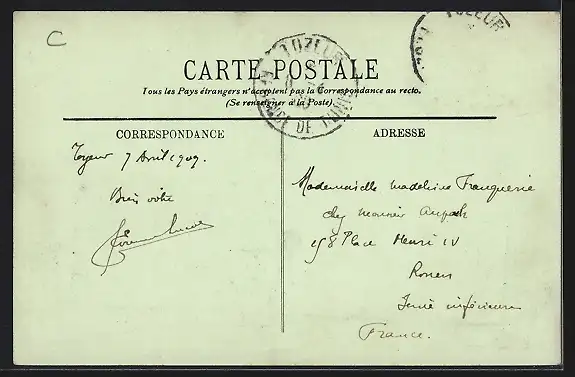 C
TOZEUR
TOZEUR
RÉGENCE DE TUNIS
CARTE POSTALE
Tous les Pays étrangers n'acceptent pas la Correspondance au recto.
(Se renseigner à la Poste).
CORRESPONDANCE
ADRESSE
Tozeur 7 Avril 1909.
Bien vôtre
Mademoiselle Madeleine Franquerie
chez Monsieur
Place Henri IV
Rouen
Seine inférieure
France.